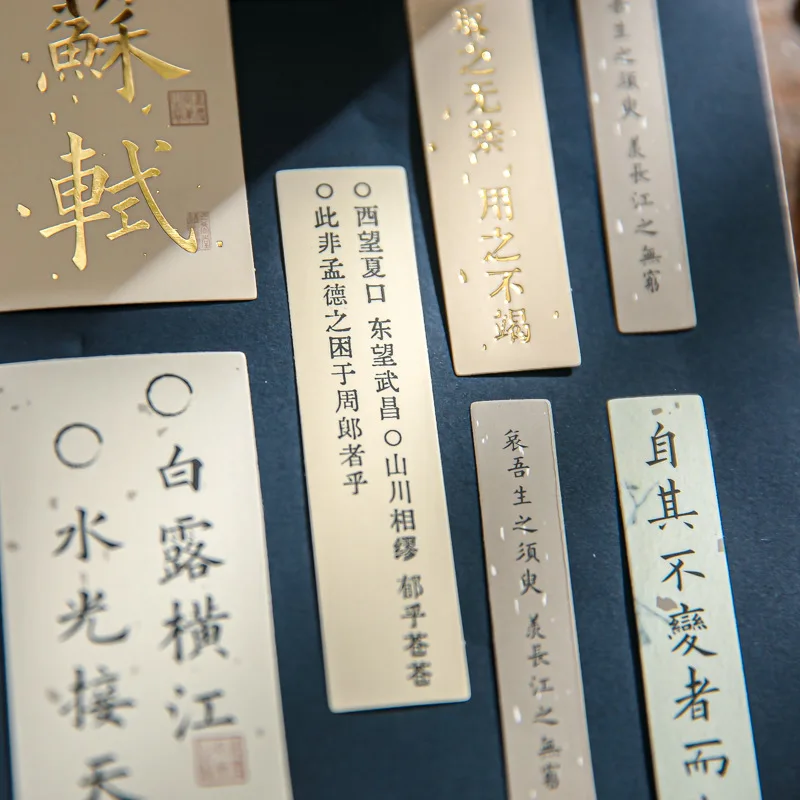 蘇軾
取之无禁 用之不竭
吾生之須臾 羨長江之無窮
○西望夏口 东望武昌○山川相缪 郁乎苍苍
○此非孟德之困于周郎者乎
○白露橫江
○水光接天
哀吾生之須臾 羨長江之無窮
自其不變者而